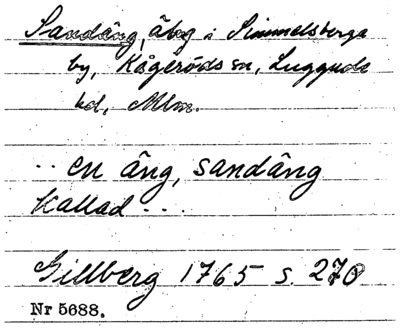 Sandäng, äng i Simmelsberga
by, Kågeröds sn, Luggude
hd, Mlm.
.. en äng, sandäng
kallad...
Gillberg 1765 s. 270
Nr 5688.